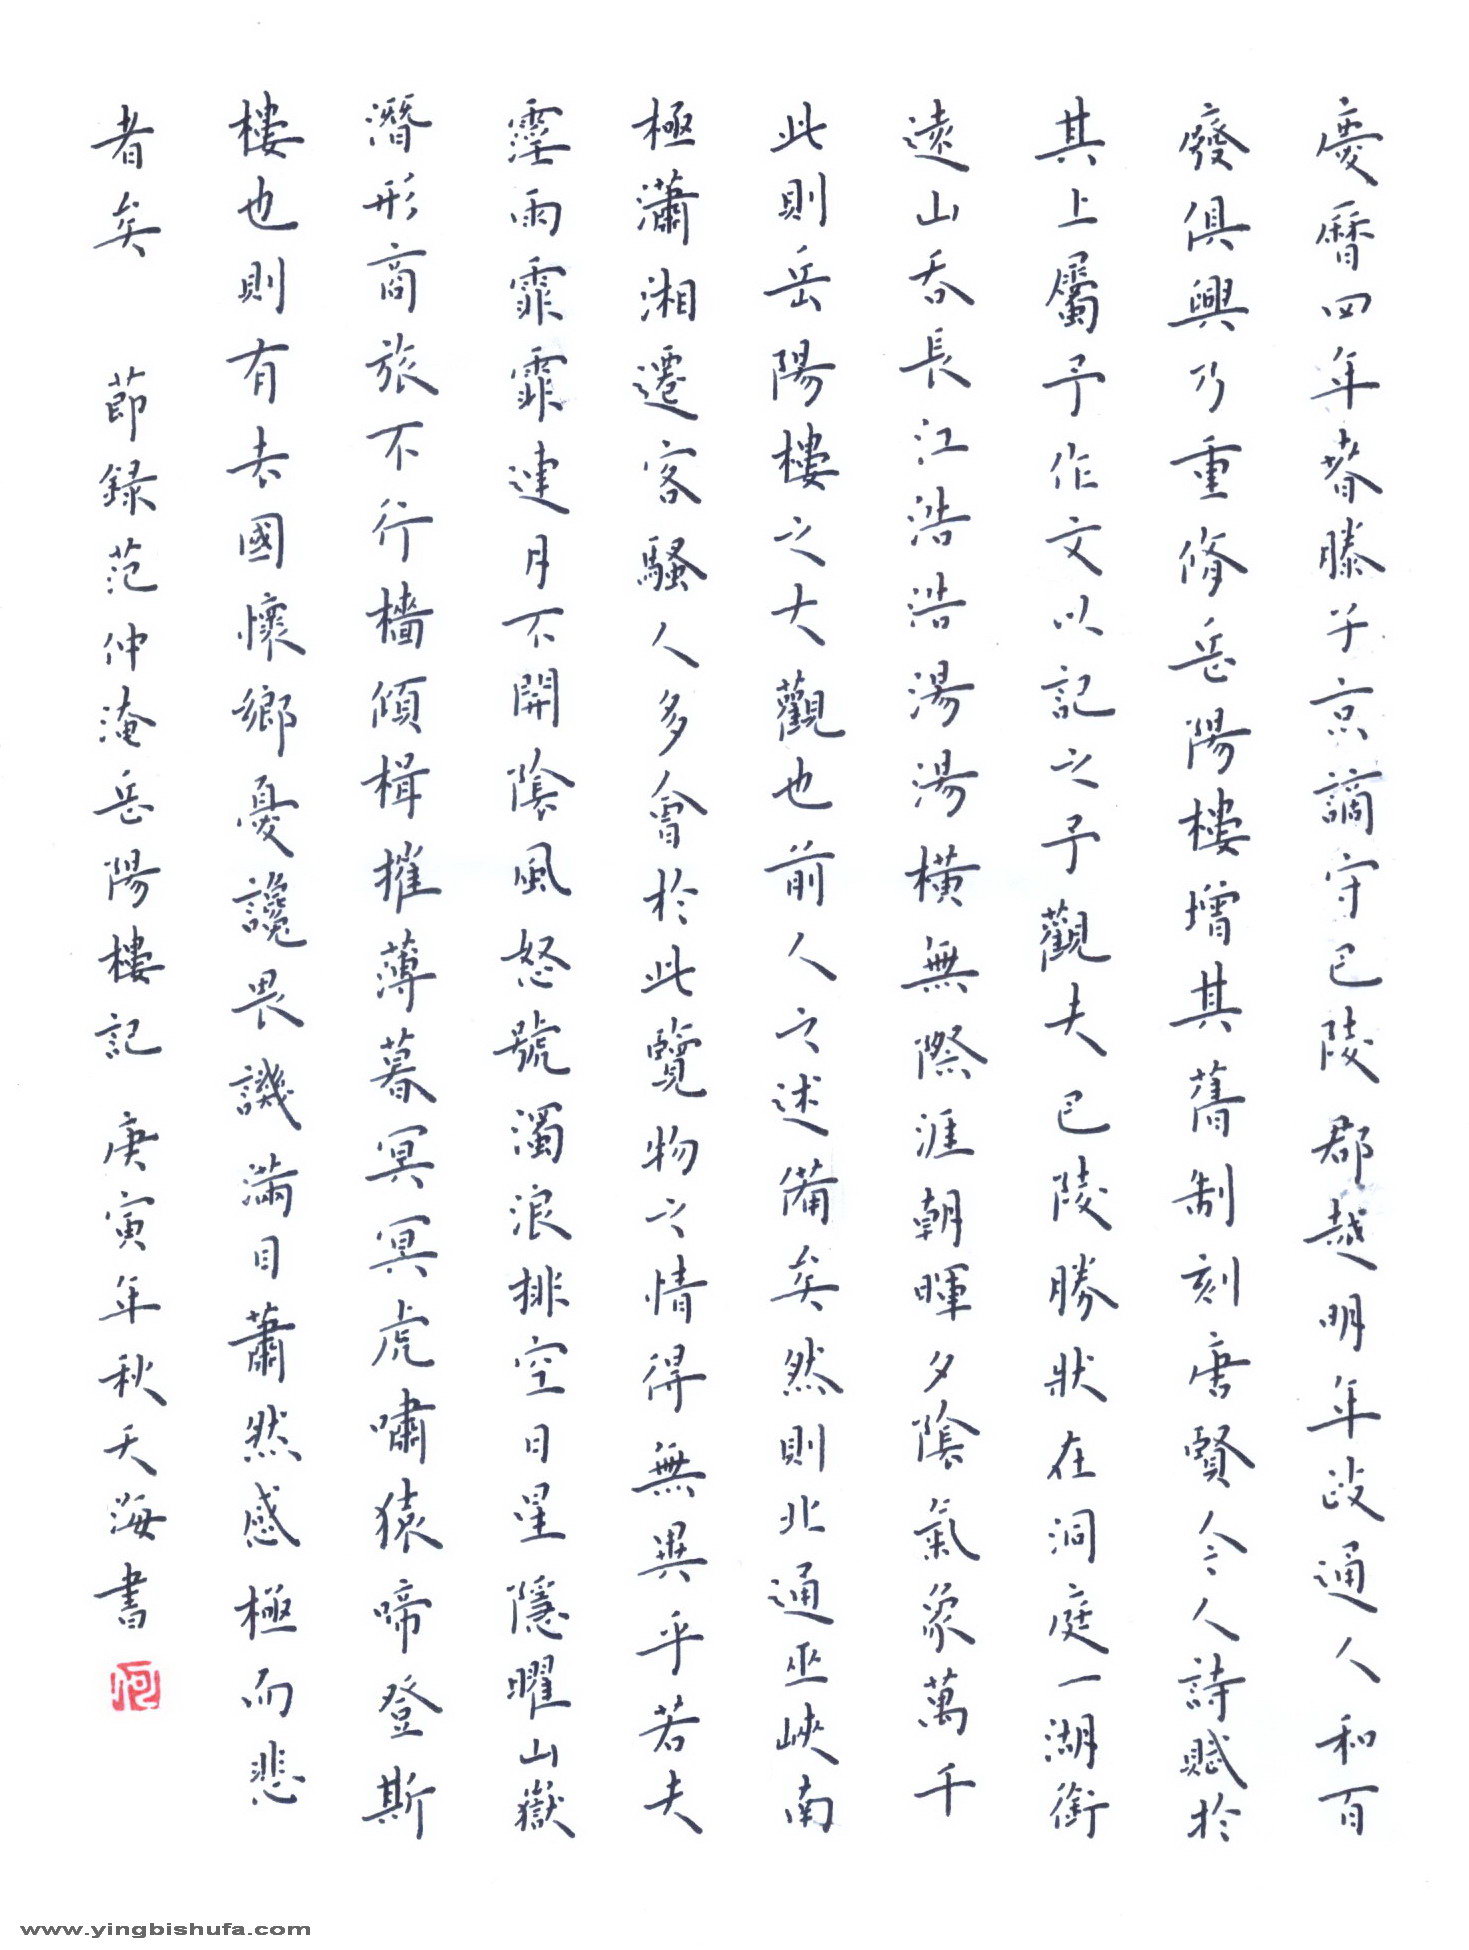 慶曆四年春滕子京謫守巴陵郡越明年政通人和百
廢俱興乃重脩岳陽樓增其舊制刻唐賢今人詩賦於
其上屬予作文以記之予觀夫巴陵勝狀在洞庭一湖銜
遠山吞長江浩浩湯湯橫無際涯朝暉夕陰氣象萬千
此則岳陽樓之大觀也前人之述備矣然則北通巫峽南
極瀟湘遷客騷人多會於此覽物之情得無異乎若夫
霪雨霏霏連月不開陰風怒號濁浪排空日星隱曜山嶽
潛形商旅不行檣傾楫摧薄暮冥冥虎嘯猿啼登斯
樓也則有去國懷鄉憂讒畏譏滿目蕭然感極而悲
者矣 節錄范仲淹岳陽樓記 庚寅年秋天海書
何
www.yingbishufa.com